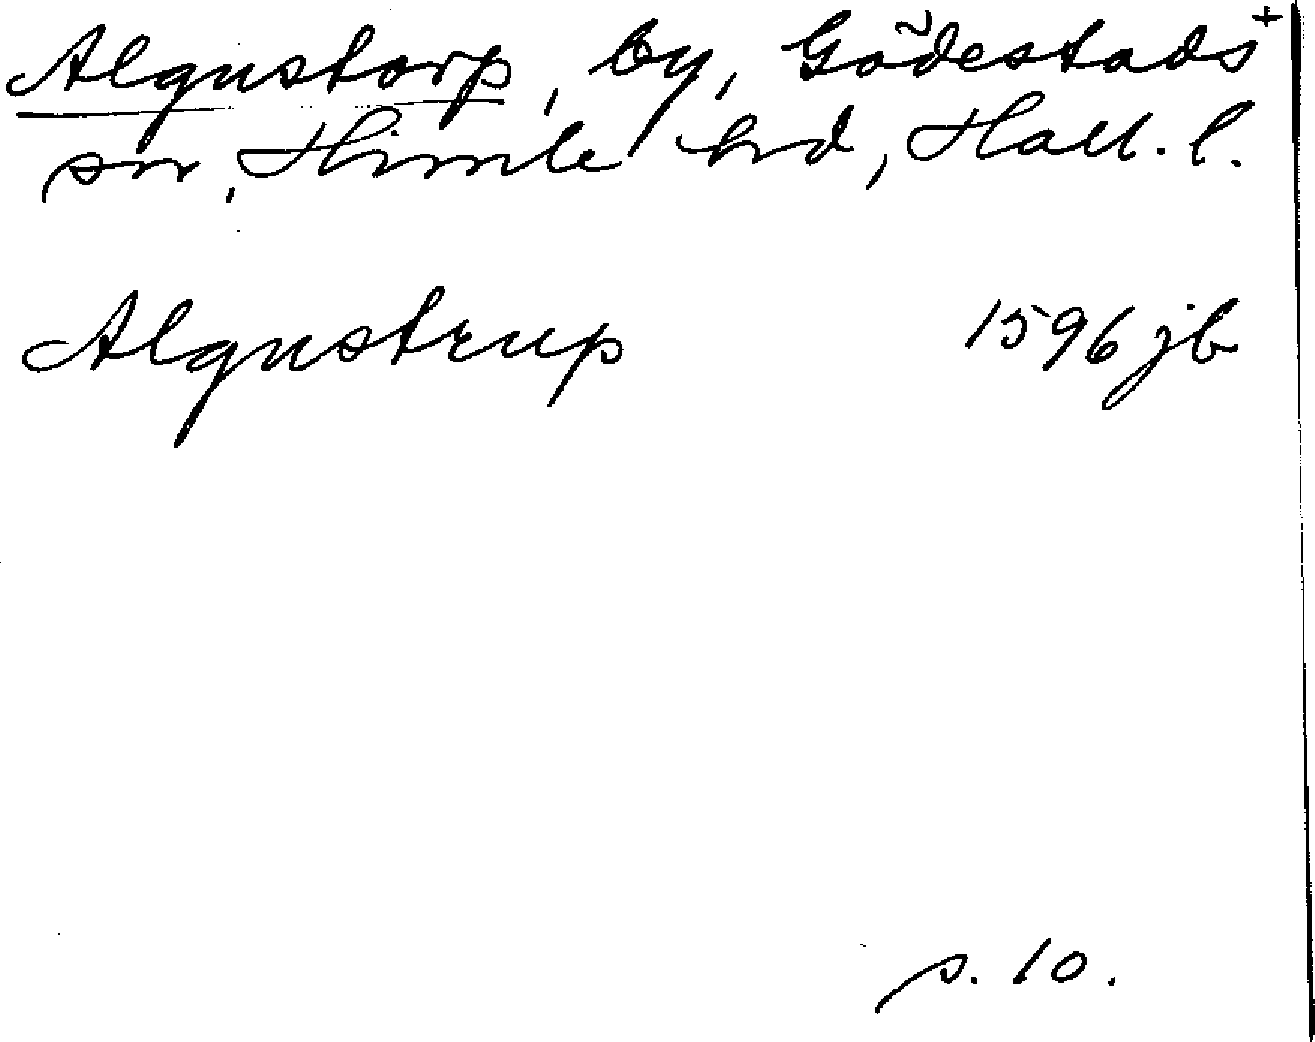 Algustorp, by, Gödestads +
sn, Himle hrd, Hall. l.
Algustrup 1596 jb
s. 10.